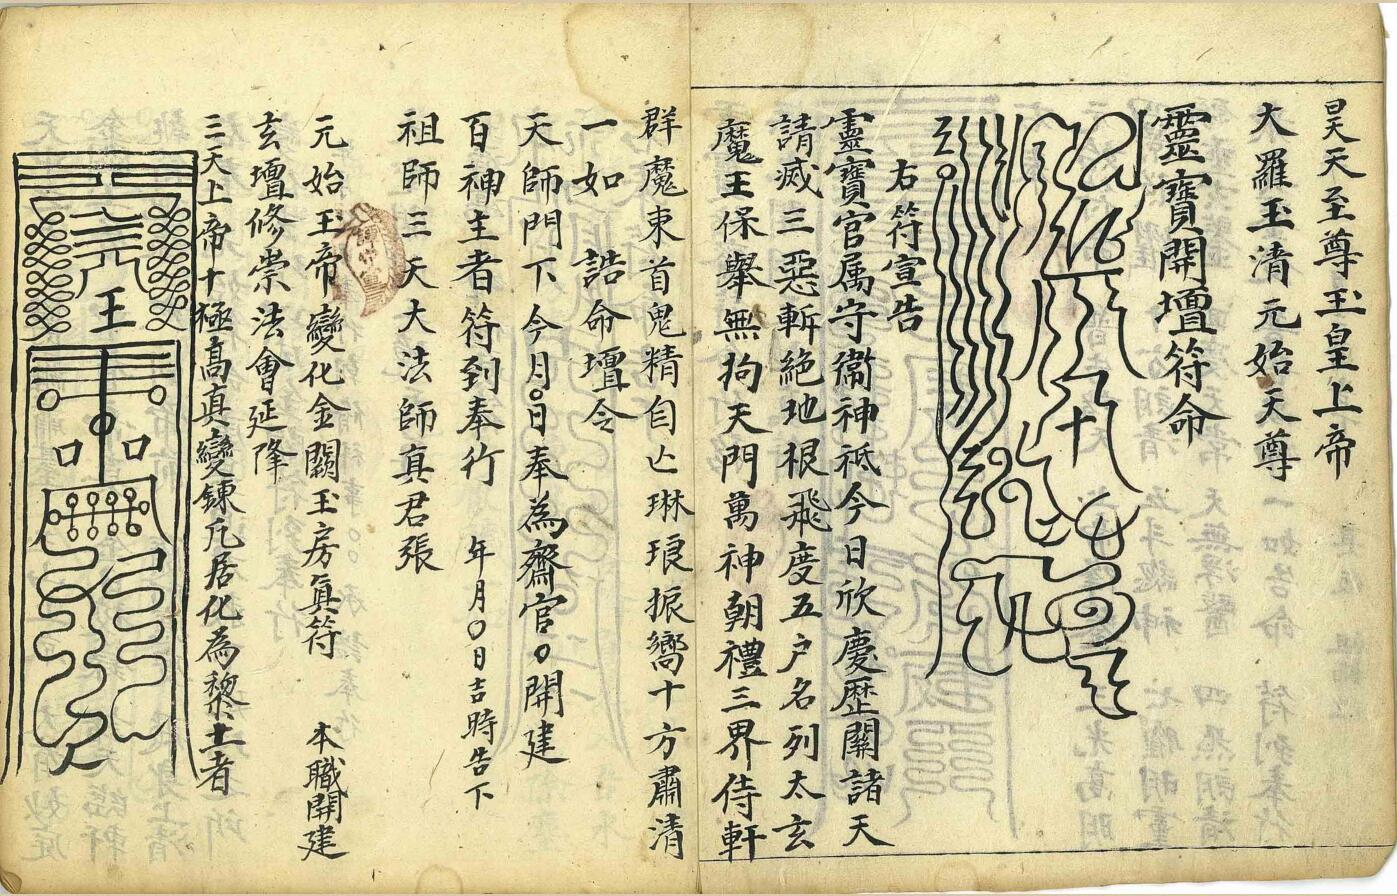 昊天至尊玉皇上帝
大羅玉清元始天尊
靈寶開壇符命
右符宣告
靈寶官属守衞神祗今日欣慶歴關諸天
請滅三惡斬絶地根飛度五户名列太玄
魔王保舉無拘天門萬神朝禮三界侍軒
群魔束首鬼精自亡琳琅振嚮十方肅清
一如 誥命壇令
天師門下今月〇日奉為齋官〇開建
百神主者符到奉行 年月〇日吉時告下
祖師三天大法師真君張
元始玉帝變化金闕玉房真符 本職開建
玄壇修崇法會延降
三天上帝十極高真變鍊凡居化為黎土者